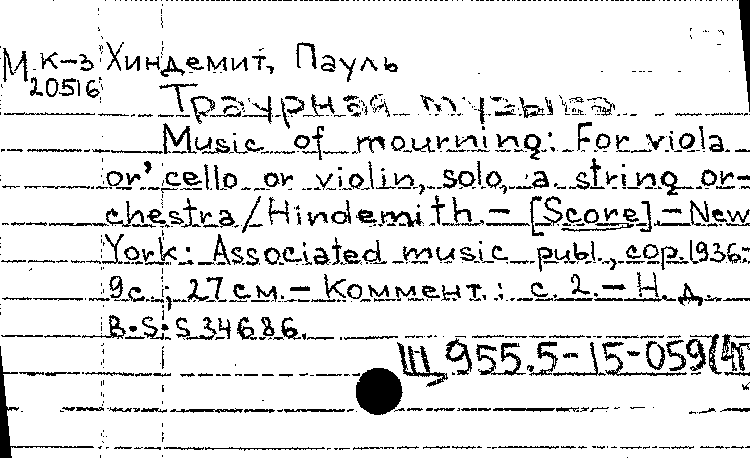 М К-3 Хиндемит, Пауль
20516
Траурная музыка
Music of mourning: For viola
or' cello or violin, solo, a. string or-
chestra/Hindemith.- [Score].- New
York: Associated music publ., cop.1936.-
9c.; 27 см.- Коммент.: с. 2.- Н. д.
B.S.S 34686.
Щ 955.5-15-059(4Г